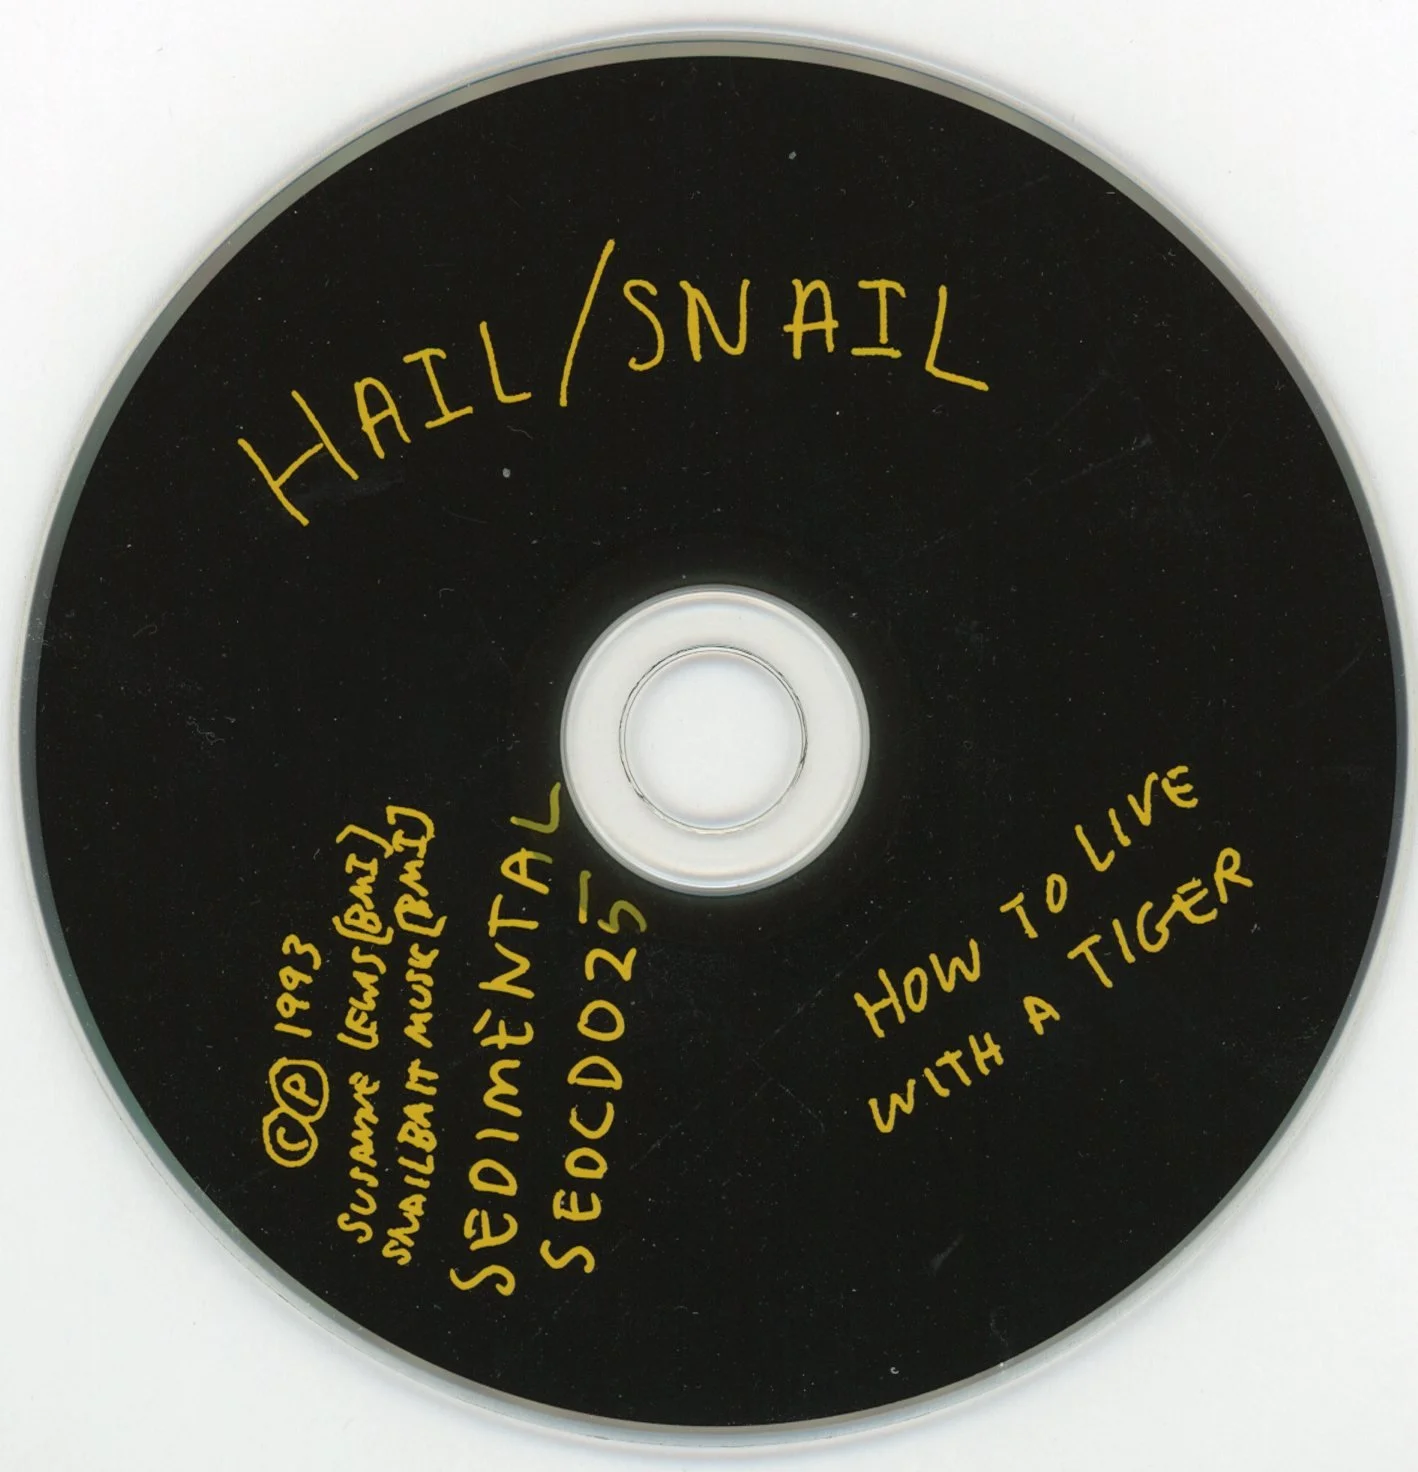 HAIL/SNAIL
HOW TO LIVE
WITH A TIGER
©℗ 1993
SUSANNE LEWIS [BMI]
SNAILBAIT MUSIC [BMI]
SEDIMENTAL
SEDCD025